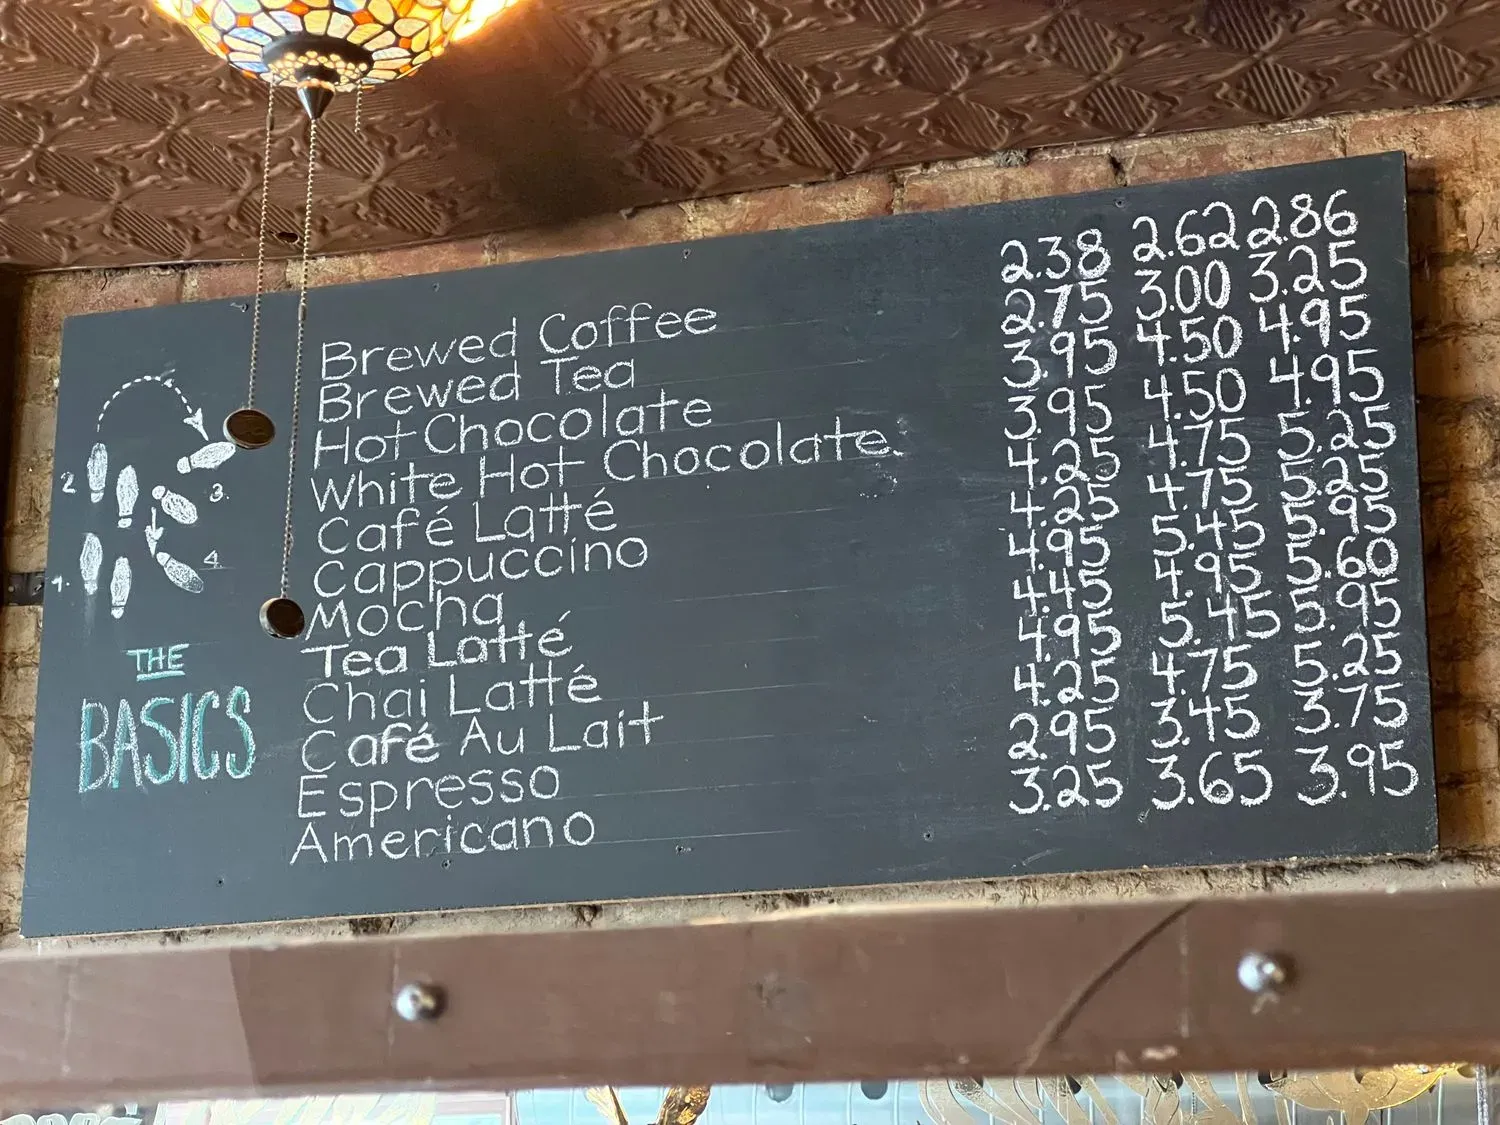 Brewed Coffee 2.38 2.62 2.86
Brewed Tea 2.75 3.00 3.25
Hot Chocolate 3.95 4.50 4.95
White Hot Chocolate 3.95 4.50 4.95
Café Latté 4.25 4.75 5.25
Cappuccino 4.25 4.75 5.25
Mocha 4.95 5.45 5.95
Tea Latté 4.45 4.95 5.60
Chai Latté 4.95 5.45 5.95
Café Au Lait 4.25 4.75 5.25
Espresso 2.95 3.45 3.75
Americano 3.25 3.65 3.95
2
3.
4.
1.
THE
BASICS